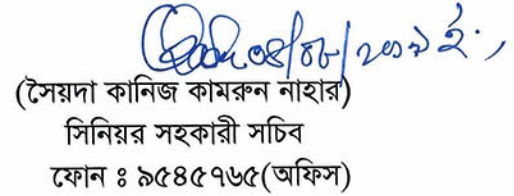 ০৪/০৮/২০১৯ ইং,
(সৈয়দা কানিজ কামরুন নাহার)
সিনিয়র সহকারী সচিব
ফোন ঃ ৯৫৪৫৭৬৫(অফিস)